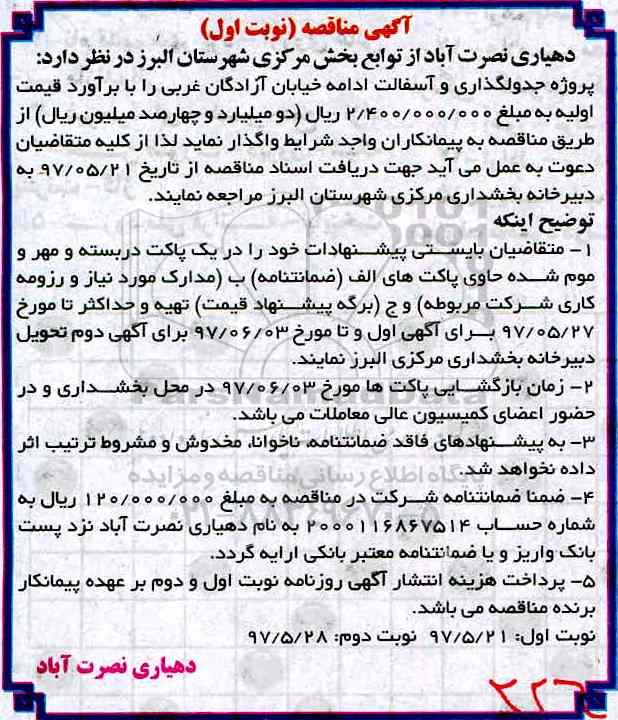 آگهی مناقصه (نوبت اول)
دهیاری نصرت آباد از توابع بخش مرکزی شهرستان البرز در نظر دارد:
پروژه جدولگذاری و آسفالت ادامه خیابان آزادگان غربی را با برآورد قیمت
اولیه به مبلغ ۲/۴۰۰/۰۰۰/۰۰۰ ریال (دو میلیارد و چهارصد میلیون ریال) از
طریق مناقصه به پیمانکاران واجد شرایط واگذار نماید لذا از کلیه متقاضیان
دعوت به عمل می آید جهت دریافت اسناد مناقصه از تاریخ ۹۷/۰۵/۲۱ به
دبیرخانه بخشداری مرکزی شهرستان البرز مراجعه نمایند.
توضیح اینکه
۱- متقاضیان بایستی پیشنهادات خود را در یک پاکت دربسته و مهر و
موم شده حاوی پاکت های الف (ضمانتنامه) ب (مدارک مورد نیاز و رزومه
کاری شرکت مربوطه) و ج (برگه پیشنهاد قیمت) تهیه و حداکثر تا مورخ
۹۷/۰۵/۲۷ برای آگهی اول و تا مورخ ۹۷/۰۶/۰۳ برای آگهی دوم تحویل
دبیرخانه بخشداری مرکزی البرز نمایند.
۲- زمان بازگشایی پاکت ها مورخ ۹۷/۰۶/۰۳ در محل بخشداری و در
حضور اعضای کمیسیون عالی معاملات می باشد.
۳- به پیشنهادهای فاقد ضمانتنامه، ناخوانا، مخدوش و مشروط ترتیب اثر
داده نخواهد شد.
پایگاه اطلاع رسانی مناقصه و مزایده
۴- ضمنا ضمانتنامه شرکت در مناقصه به مبلغ ۱۲۰/۰۰۰/۰۰۰ ریال به
شماره حساب ۲۰۰۰۱۱۶۸۶۷۵۱۴ به نام دهیاری نصرت آباد نزد پست
بانک واریز و یا ضمانتنامه معتبر بانکی ارایه گردد.
۵- پرداخت هزینه انتشار آگهی روزنامه نوبت اول و دوم بر عهده پیمانکار
برنده مناقصه می باشد.
نوبت اول: ۹۷/۵/۲۱ نوبت دوم: ۹۷/۵/۲۸
دهیاری نصرت آباد